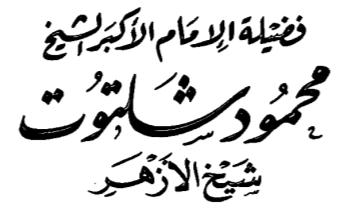 فضيلة الإمام الأكبر الشيخ
محمود شلتوت
شيخ الأزهر